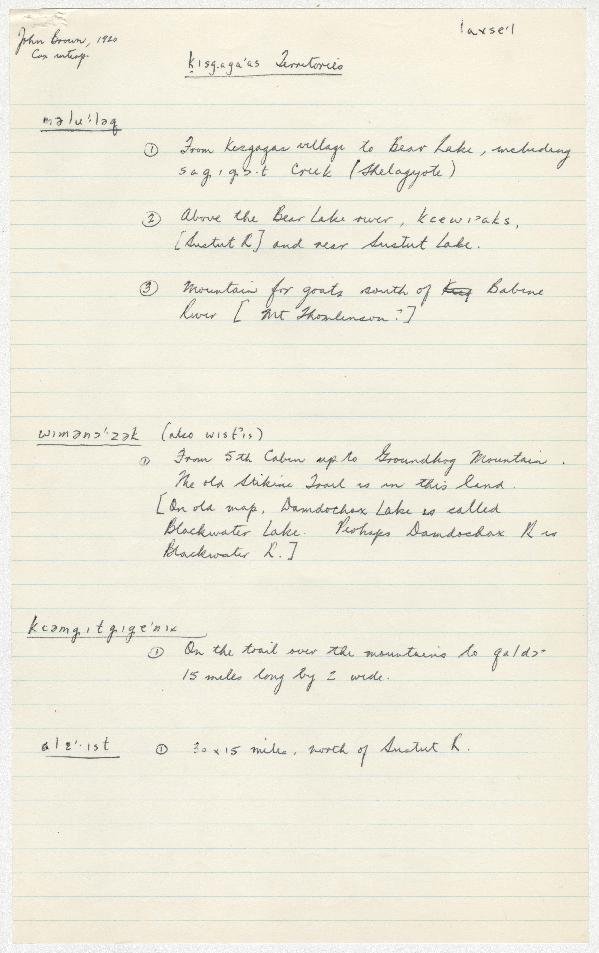 laxse'l
John Brown, 1920
Cox interp.
kisg.aga'as Territories
məlu'ləq
① From Kisgagas village to Bear Lake, including
sag.ig.ə.t Creek (Shelagyote)
② Above the Bear Lake river,
[Sustut R] and near Sustut Lake.
③ Mountain for goats south of Babine
River [Mt Thomlinson?]
wimənə'zək (also wist'is)
① From 5th Cabin up to Groundhog Mountain.
The old Stikine Trail is in this land.
[On old map, Damdochax Lake is called
Blackwater Lake. Perhaps Damdochax R is
Blackwater R.]
① On the trail over the mountains to galdə-
15 miles long by 2 wide.
alε'.ist ① 30 x 15 miles, north of Sustut R.